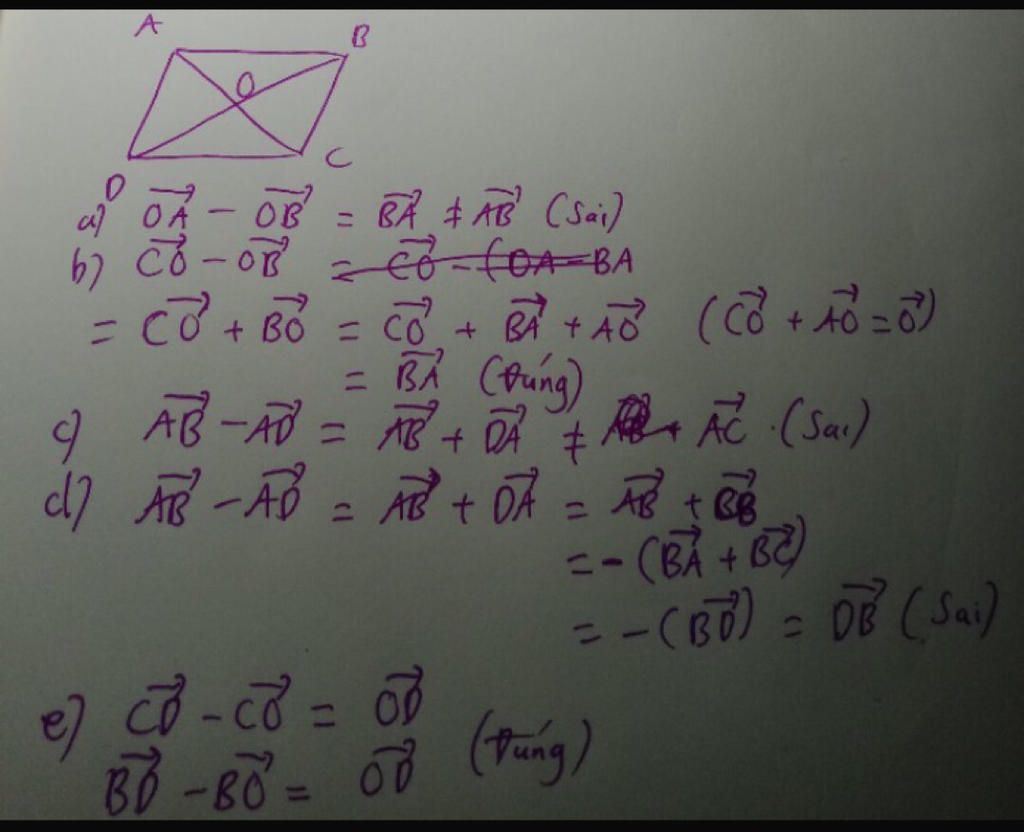 A
B
O
C
D
a) $\overrightarrow{OA} - \overrightarrow{OB} = \overrightarrow{BA} \neq \overrightarrow{AB}$ (Sai)
b) $\overrightarrow{CO} - \overrightarrow{OB}$ = CO - (OA = BA
$= \overrightarrow{CO} + \overrightarrow{BO} = \overrightarrow{CO} + \overrightarrow{BA} + \overrightarrow{AO}$ $(\overrightarrow{CO} + \overrightarrow{AO} = \overrightarrow{0})$
$= \overrightarrow{BA}$ (Đúng)
c) $\overrightarrow{AB} - \overrightarrow{AD} = \overrightarrow{AB} + \overrightarrow{DA} \neq \overrightarrow{AC}$. (Sai)
d) $\overrightarrow{AB} - \overrightarrow{AD} = \overrightarrow{AB} + \overrightarrow{DA} = \overrightarrow{AB} +$
$= -(\overrightarrow{BA} + \overrightarrow{BC})$
$= -(\overrightarrow{BD}) = \overrightarrow{DB}$ (Sai)
e) $\overrightarrow{CD} - \overrightarrow{CO} = \overrightarrow{OD}$
(Đúng)
$\overrightarrow{BD} - \overrightarrow{BO} = \overrightarrow{OD}$